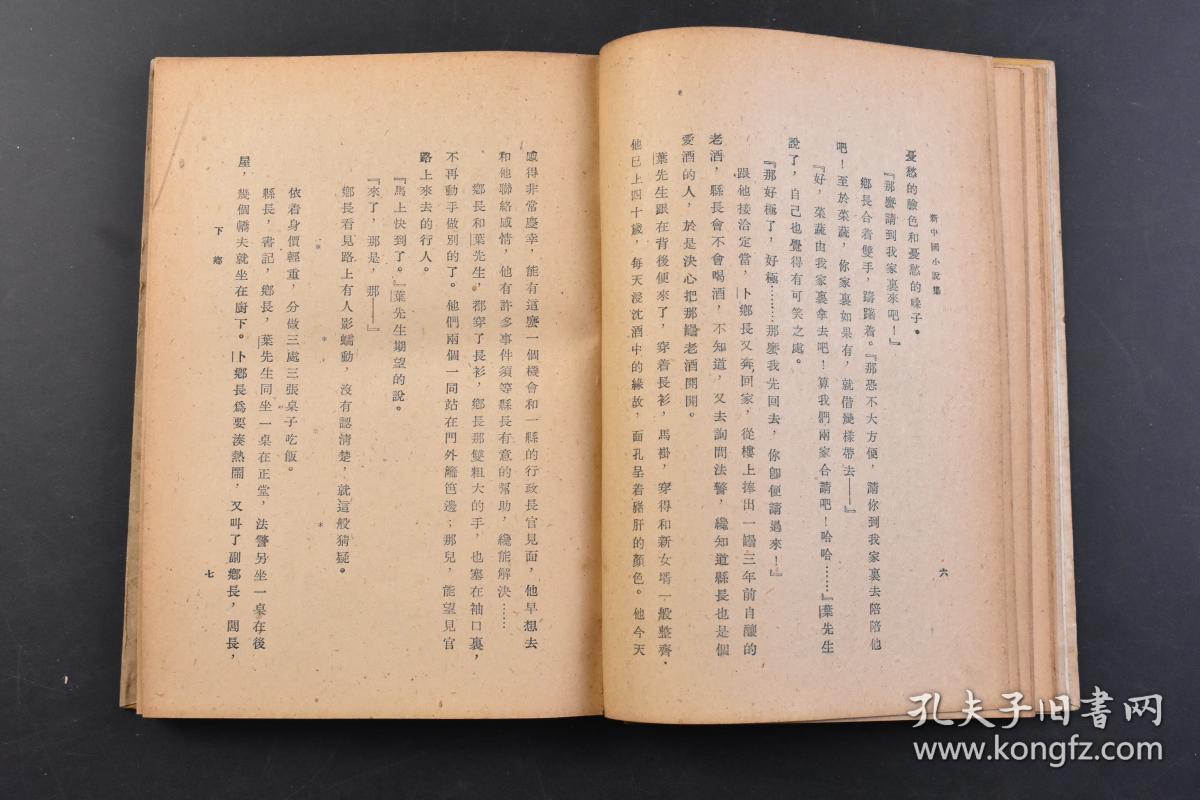 新中國小說集
憂愁的臉色和憂愁的嗓子。
『那麼請到我家裏來吧！』
鄉長合着雙手，躊躇着。『那恐不大方便，請你到我家裏去陪陪他
吧！至於菜蔬，你家裏如果有，就借幾樣帶去——』
『好，菜蔬由我家裏拿去吧！算我們兩家合請吧！哈哈……』葉先生
說了，自己也覺得有可笑之處。
『那好極了，好極………那麼我先回去，你卽便請過來！』
跟他接洽定當，卜鄉長又奔回家，從樓上捧出一罎三年前自釀的
老酒，縣長會不會喝酒，不知道，又去詢問法警，纔知道縣長也是個
愛酒的人，於是決心把那罎老酒開開。
葉先生跟在背後便來了，穿着長衫，馬褂，穿得和新女壻一般整齊．
他已上四十歲，每天浸沈酒中的緣故，面孔呈着豬肝的顏色。他今天
六
感得非常慶幸，能有這麼一個機會和一縣的行政長官見面，他早想去
和他聯絡感情，他有許多事件須等縣長有意的幫助，纔能解決……
鄉長和葉先生，都穿了長衫，鄉長那雙粗大的手，也塞在袖口裏，
不再動手做別的了。他們兩個一同站在門外籬笆邊；那兒，能望見官
路上來去的行人。
『馬上快到了。』葉先生期望的說。
『來了，那是，那——』
鄉長看見路上有人影蠕動，沒有認清楚，就這般猜疑。
* * *
依着身價輕重，分做三處三張桌子吃飯。
縣長，書記，鄉長，葉先生同坐一桌在正堂，法警另坐一桌在後
屋，幾個轎夫就坐在廚下。卜鄉長爲要湊熱鬧，又叫了副鄉長，閭長，
下鄉
七
孔夫子旧书网
www.kongfz.com